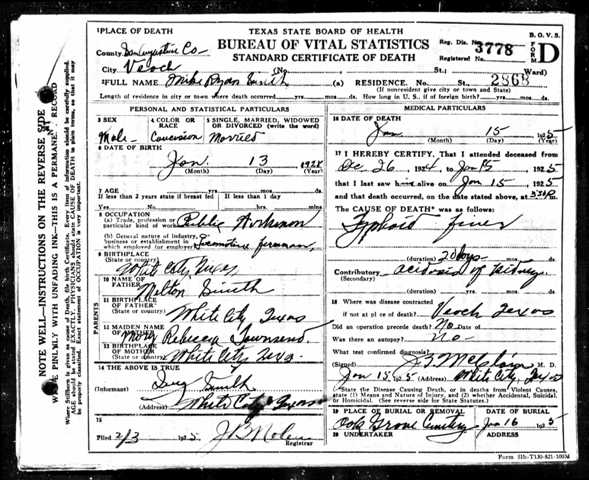 TEXAS STATE BOARD OF HEALTH
BUREAU OF VITAL STATISTICS
STANDARD CERTIFICATE OF DEATH
B. O. V. S.
FORM D
Reg. Dis. 3778
2868
1 PLACE OF DEATH
County San Augustine Co
City Veach (No. St.; Ward)
2 FULL NAME Mike Ryan Smith (a) RESIDENCE. No. St.,
(If nonresident give city or town and State)
Length of residence in city or town where death occurred How long in U. S., if of foreign birth?
PERSONAL AND STATISTICAL PARTICULARS
3 SEX Male
4 COLOR OR RACE
5 SINGLE, MARRIED, WIDOWED OR DIVORCED (write the word) Married
6 DATE OF BIRTH
Jan. 13
(Month) (Day) (Year)
7 AGE
If less than 2 years state if breast fed If less than 1 day
Yes No hrs. min.
8 OCCUPATION
(a) Trade, profession or particular kind of work Public
(b) General nature of industry, business or establishment in which employed (or employer)
9 BIRTHPLACE
(State or country) White City, Texas
10 NAME OF FATHER Melton Smith
11 BIRTHPLACE OF FATHER
(State or country) White City, Texas
PARENTS
12 MAIDEN NAME OF MOTHER Mary Rebecca Townsend
13 BIRTHPLACE OF MOTHER
(State or country) White City, Texas
14 THE ABOVE IS TRUE
(Informant) Smith
(Address) White City Texas
15
Filed 2/3 1925 Registrar
MEDICAL PARTICULARS
16 DATE OF DEATH
Jan 15 1925
(Month) (Day) (Year)
17 I HEREBY CERTIFY, That I attended deceased from
Dec 26 1924 to Jan 15 1925
that I last saw h alive on Jan 15 1925
and that death occurred, on the date stated above, at
The CAUSE OF DEATH* was as follows:
Typhoid Fever
(duration) 20 days
Contributory of Kidney
(duration)
18 Where was disease contracted
if not at place of death? Veach Texas
Did an operation precede death? No
Was there an autopsy? No
What test confirmed diagnosis?
(Signed) M. D.
Jan 15 1925 (Address) White City, Texas
*State the Disease Causing Death, or in deaths from Violent Causes, state (1) Means and Nature of Injury, and (2) whether Accidental, Suicidal, or Homicidal. (See reverse side for State Statutes.)
19 PLACE OF BURIAL OR REMOVAL DATE
Oak Grove Cemetery Jan 16 1925
20 UNDERTAKER ADDRESS
NOTE WELL—INSTRUCTIONS ON THE REVERSE SIDE
WRITE PLAINLY WITH UNFADING INK—THIS IS A PERMANENT RECORD